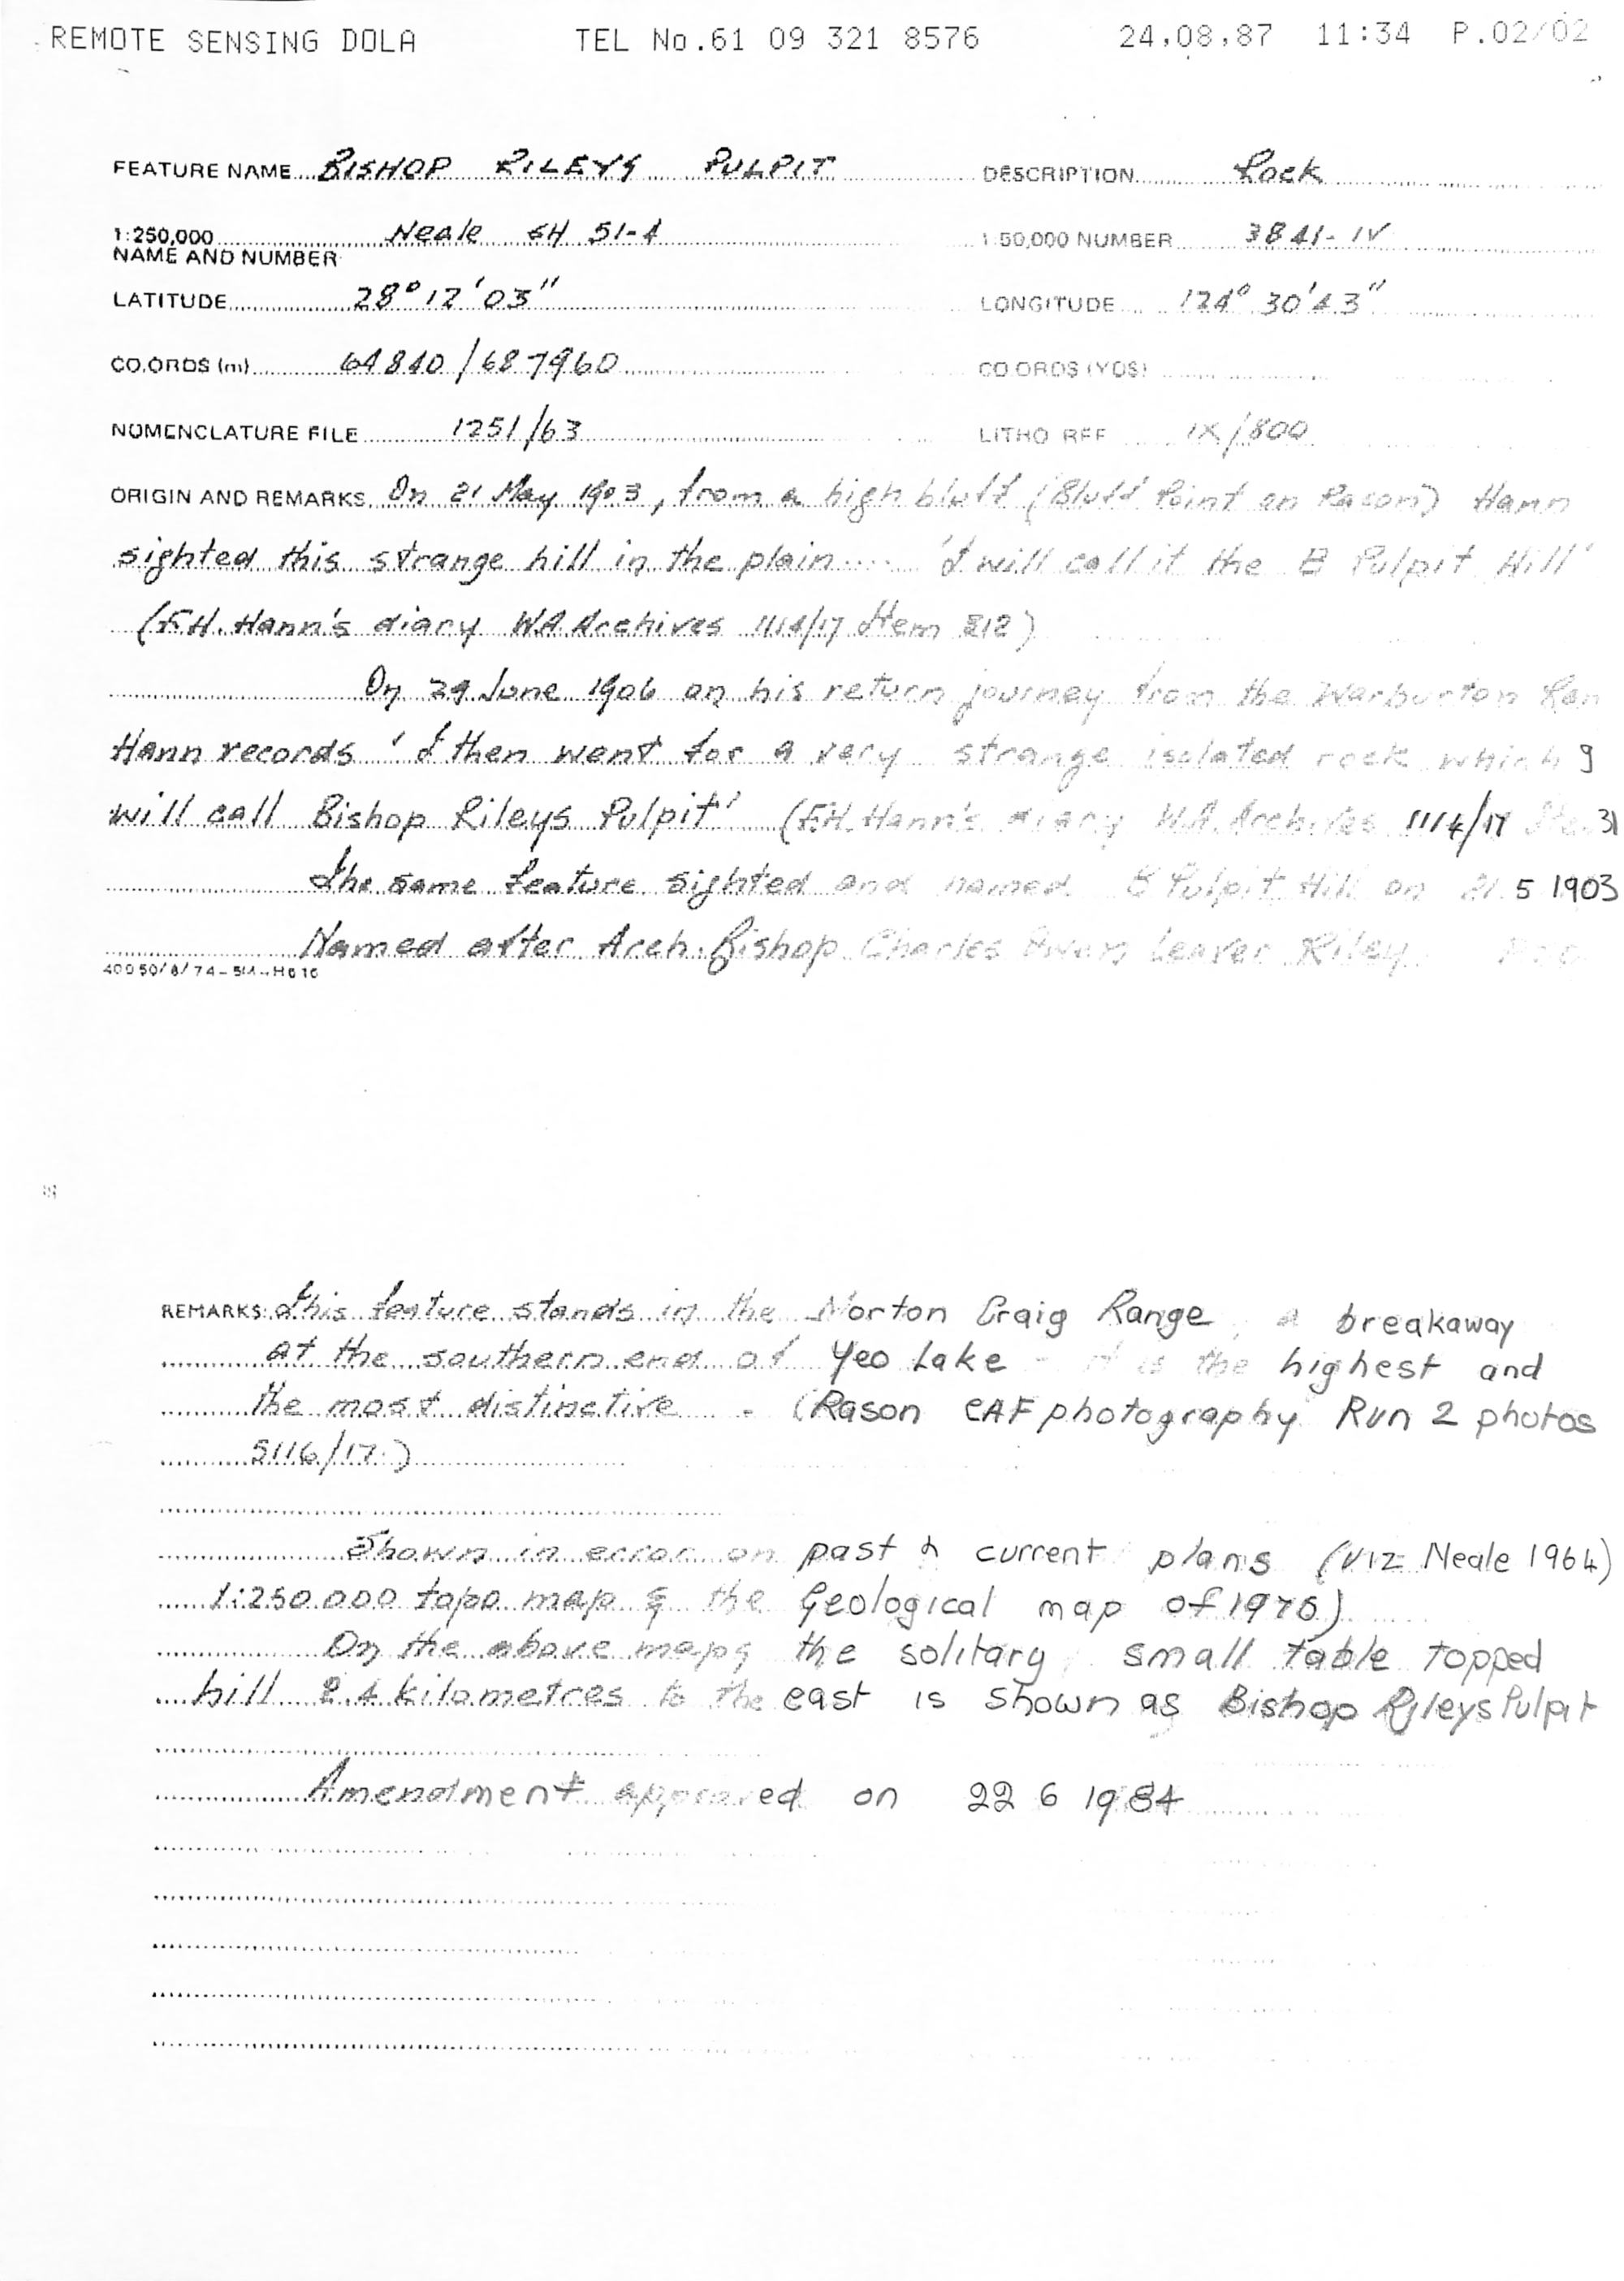 REMOTE SENSING DOLA TEL No.61 09 321 8576 24,08,87 11:34 P.02/02
FEATURE NAME BISHOP RILEYS PULPIT DESCRIPTION Rock
1:250,000 Neale SH 51-4 1:50,000 NUMBER 3841-IV
NAME AND NUMBER
LATITUDE 28° 12' 03" LONGITUDE 124° 30' 43"
CO.ORDS (m) 64840/687960 CO.ORDS (YDS)
NOMENCLATURE FILE 1251/63 LITHO REF IX/800
ORIGIN AND REMARKS On 21 May 1903, from a high bluff (Bluff Point on Rason) Hann
sighted this strange hill in the plain.... 'I will call it the B Pulpit Hill'
(F.H. Hann's diary W.A. Archives 1114/17 Item 212)
On 29 June 1906 on his return journey from the Warburton Ran
Hann records 'I then went for a very strange isolated rock which I
will call Bishop Rileys Pulpit' (F.H. Hann's diary W.A. Archives 1114/17 31
The same feature sighted and named B Pulpit Hill on 21 5 1903
Named after Arch. Bishop Charles Owen Leaver Riley
40050/8/74-5M-H616
REMARKS: This feature stands in the Norton Craig Range, a breakaway
at the southern end of Yeo Lake - it is the highest and
the most distinctive - (Rason CAF photography Run 2 photos
5116/17.)
Shown in error on past & current plans (viz Neale 1964)
1:250.000 topo map & the Geological map of 1975)
On the above maps the solitary small table topped
hill 2.4 kilometres to the east is shown as Bishop Rileys Pulpit
Amendment approved on 22 6 1984